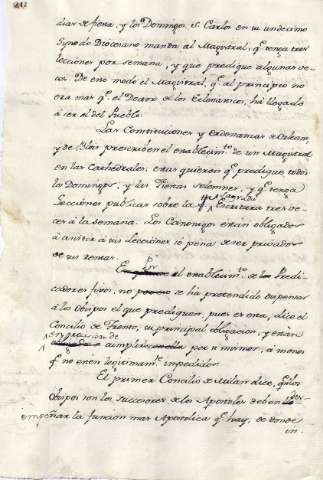 dias de fiesta, y los Domingos. S. Carlos en su undecimo
Synodo Diocesano manda al Magistral, q.e tenga tres
lecciones por semana, y que predique algunas ve-
ces. De este modo el Magistral, q.e al principio no
era mas q.e el Doctor de los Eclesiasticos, há llegado
à ser el del Pueblo.
Las Constituciones y ordenanzas de Orleans,
y de Blois prescriben el establecim.to de un Magistral
en las Cathedrales: estas quieren q.e predique todos
los Domingos, y las Fiestas solemnes, y q.e tenga
Lecciones publicas sobre la Sagrada Escritura tres ve-
ces à la semana. Los Canonigos están obligados
à asistir à sus Lecciones so pena de ser privados
de sus rentas.
Por el establecim.to de los Predi-
cadores fixos, no se há pretendido dispensar
à los Obispos el que prediquen, pues es esta, dice el
Concilio de Trento, su principal obligacion, y están
en precision de cumplirla por si mismos, à menos
q.e no esten legitimam.te impedidos.
El primer Concilio de Milan dice, q.e los
Obispos son los succesores de los Apostoles deben
enseñar la funcion mas Apostolica q.e hay, de donde